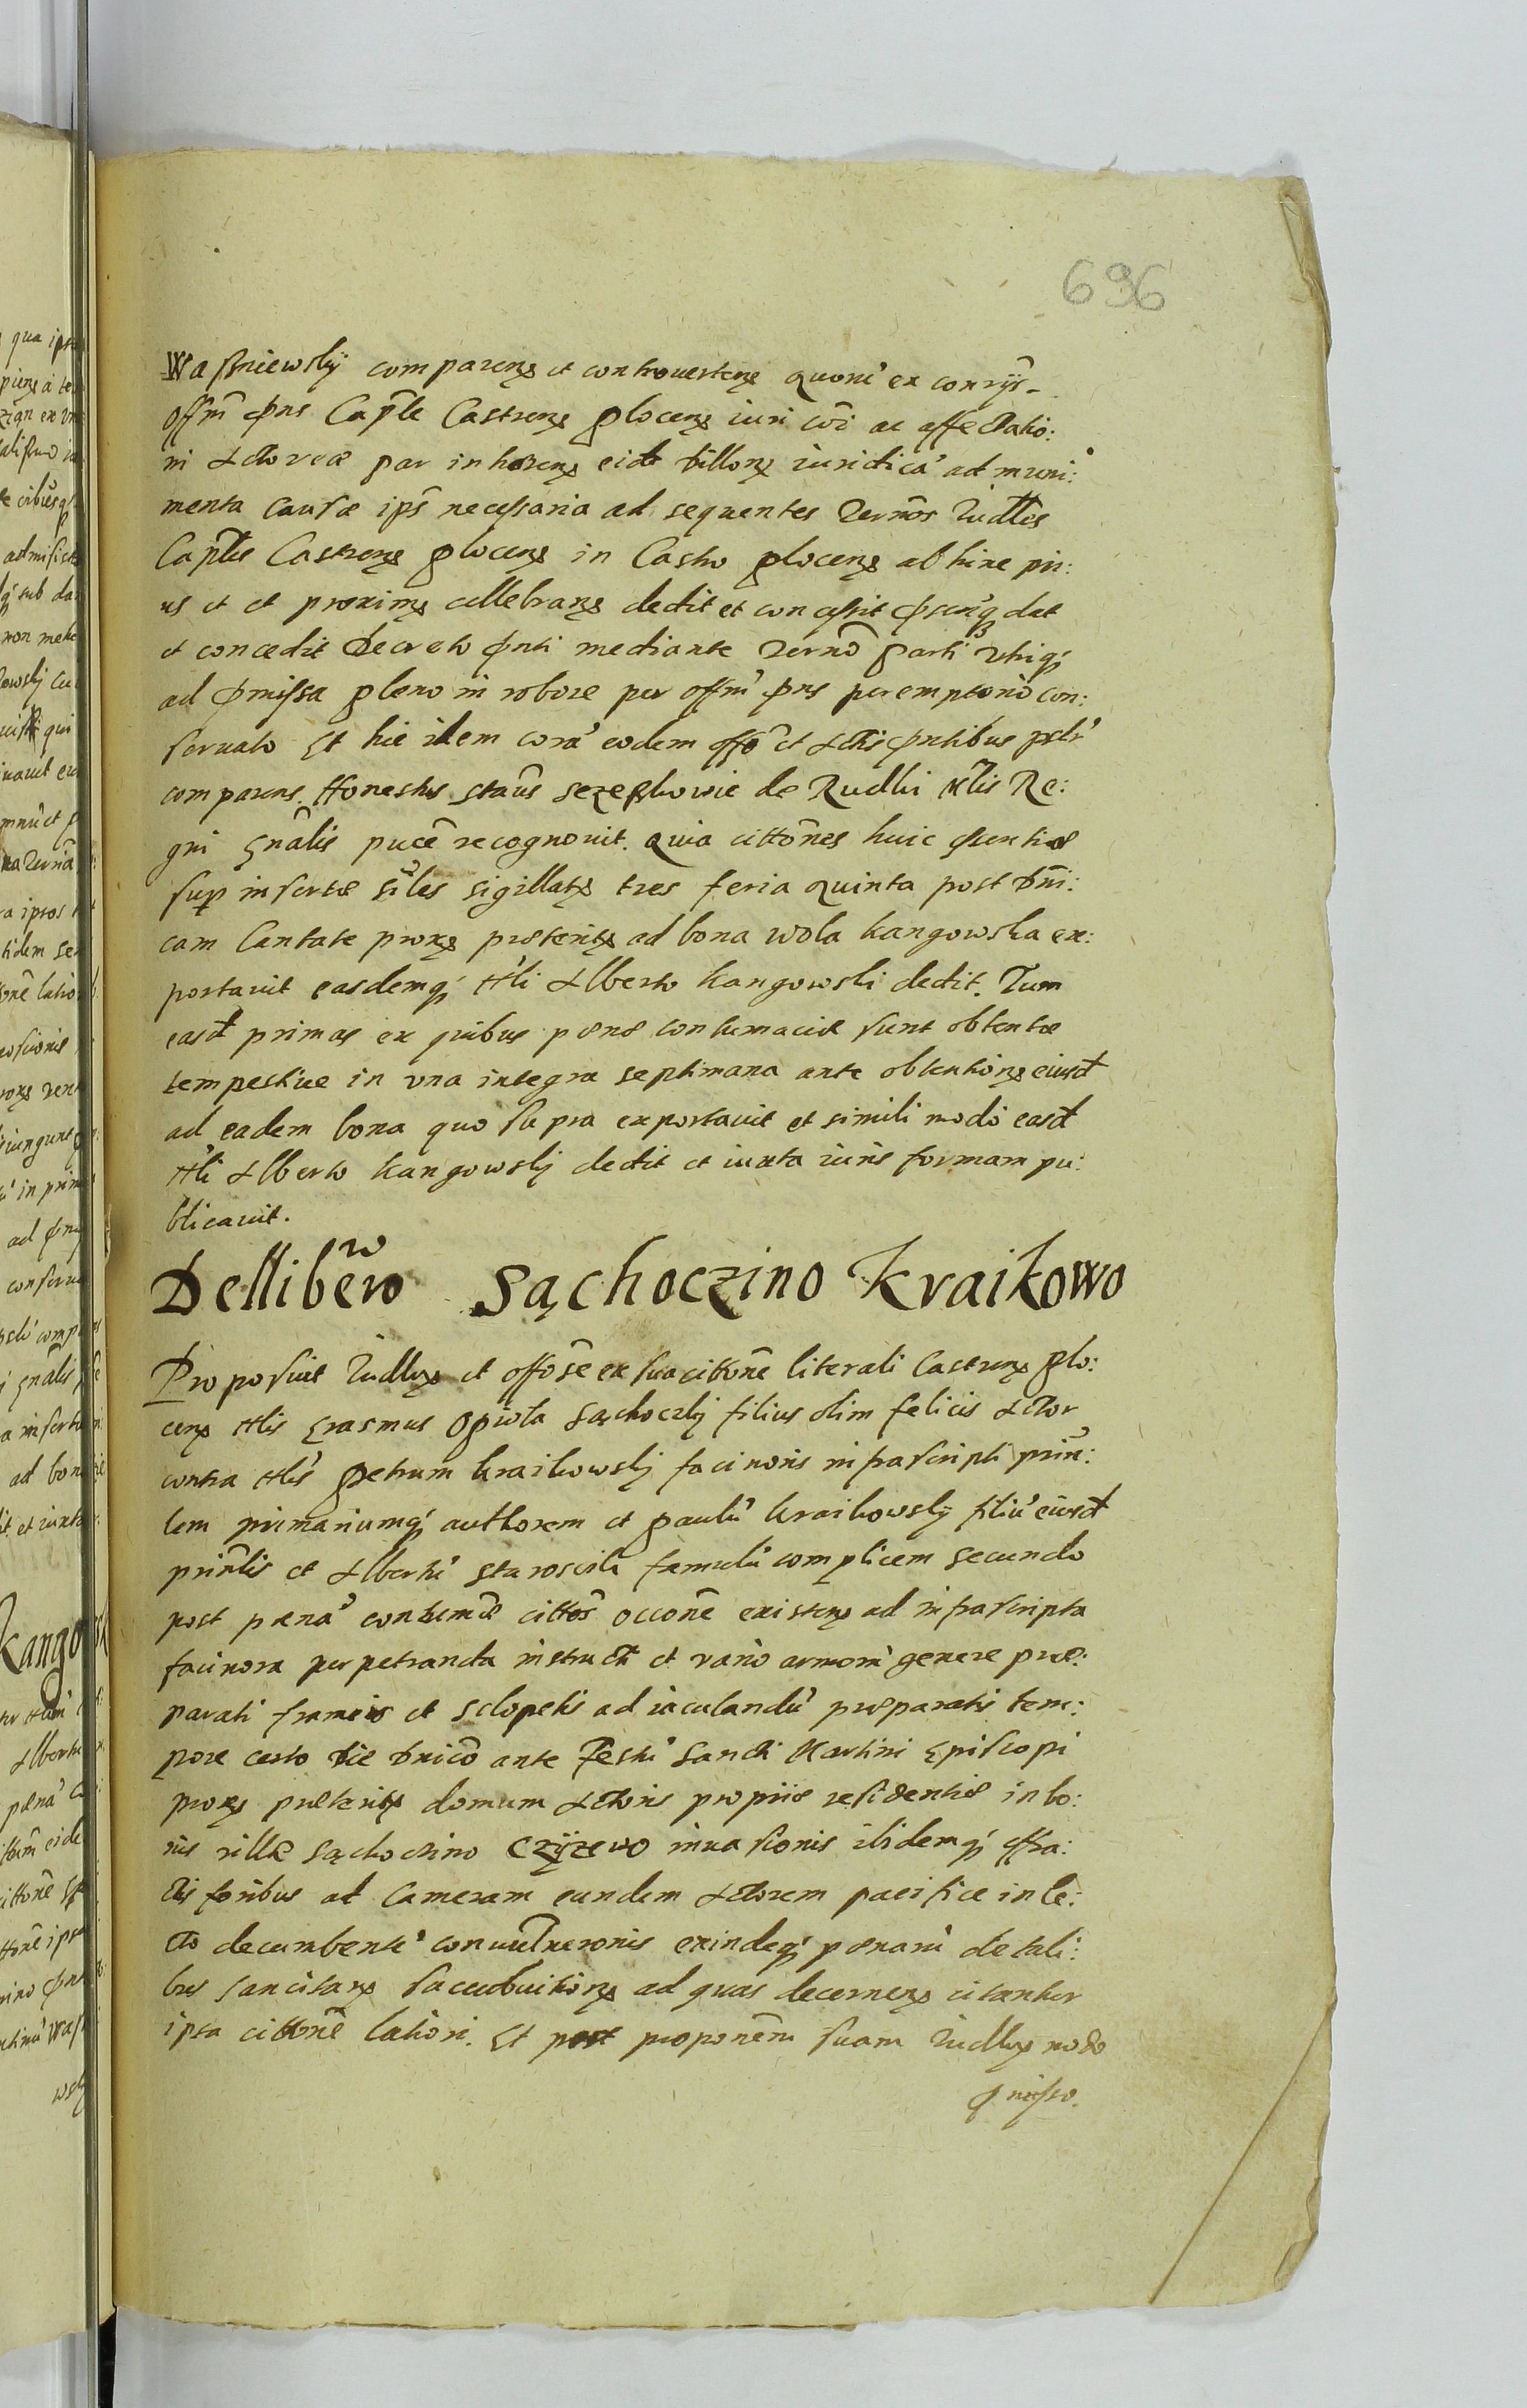 696
Wasniewsky comparens et controvertens quoni' ex conrys-
offm pns Caple Castrens plocens iuri coi ac affectatio:
ni Actoreae par inherens eid dillons iuridica' ad muni:
menta causae ips necessaria ad sequentes Termos Iudles
Caples Castrens plocens in Castro plocens ab hinc pri:
us et et proxims cellebrans dedit et concessit pseniqz dat
et concedit Decreto pnti mediante Termo parti utriqz
ad pmissa pleno in robore per offm' pns peremptorio con:
servato Et hic idem cora' eodem offo et Actis pntibus pslr'
comparens Honestus Staus de Rudki Mtis Re:
gni Gnalis puce recognovit. quia cittones huic sentiae
sup insertae siles sigillats tres feria quinta post Dni:
cam Cantate proxs praeterits ad bona Wola Kangowska ex:
portavit easdemqz Nli Alberto Kangowski dedit. Tum
easd primas ex quibus paenae contumaciae sunt obtentae
tempestive in una integra septimana ante obtentions eiusd
ad eadem bona quo supra exportavit et simili modo easd
Nli Alberto Kangowsky dedit et iuxta iuris formam pu:
blicavit.
Dellibero Sąchoczino Kraikowo
Proposuit Iudlrs et offose ex sua cittone literali Castrens plo:
cens Nlis Erasmus Opiola Sąchoczky filius olim felicis Actor
contra Nles petrum kraikowsky facinoris infrascripti prin:
lem primariumqz authorem et paulu' kraikowsky filiu' eiusd
prinlis et Albertu' Staroscik famulu' complicem Secundo
post paena' contumae cittos occone existens ad infrascripta
facinora perpetranda instructi et vario armoru' genere prae:
parati frameis et sclopetis ad iaculandu' praeparatis tem:
pore certo die Dnico ante Festu' Sancti Martini Episcopi
proxs praeterits domum Actoris propriae residentiae in bo:
nis villae Sąchoczino Czyzewo invasionis ibidemqz effra:
ctis foribus ad Cameram eundem Actorem pacifice in le:
cto decumbente' convulneronis exindeqz paenaru' de tali:
bus sancitars succubuitions ad quas decernens citantur
ipsa cittone latiori. Et post proponem suam Iudlrs modo
pmisso.